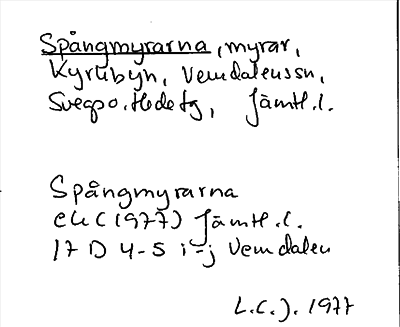 Spångmyrarna, myrar,
Kyrkbyn, Vemdalens sn,
Svegs o. Hede tg, Jämtl. l.
Spångmyrarna
ek (1977) Jämtl. l.
17 D 4-5 i-j Vemdalen
L.C.J. 1977